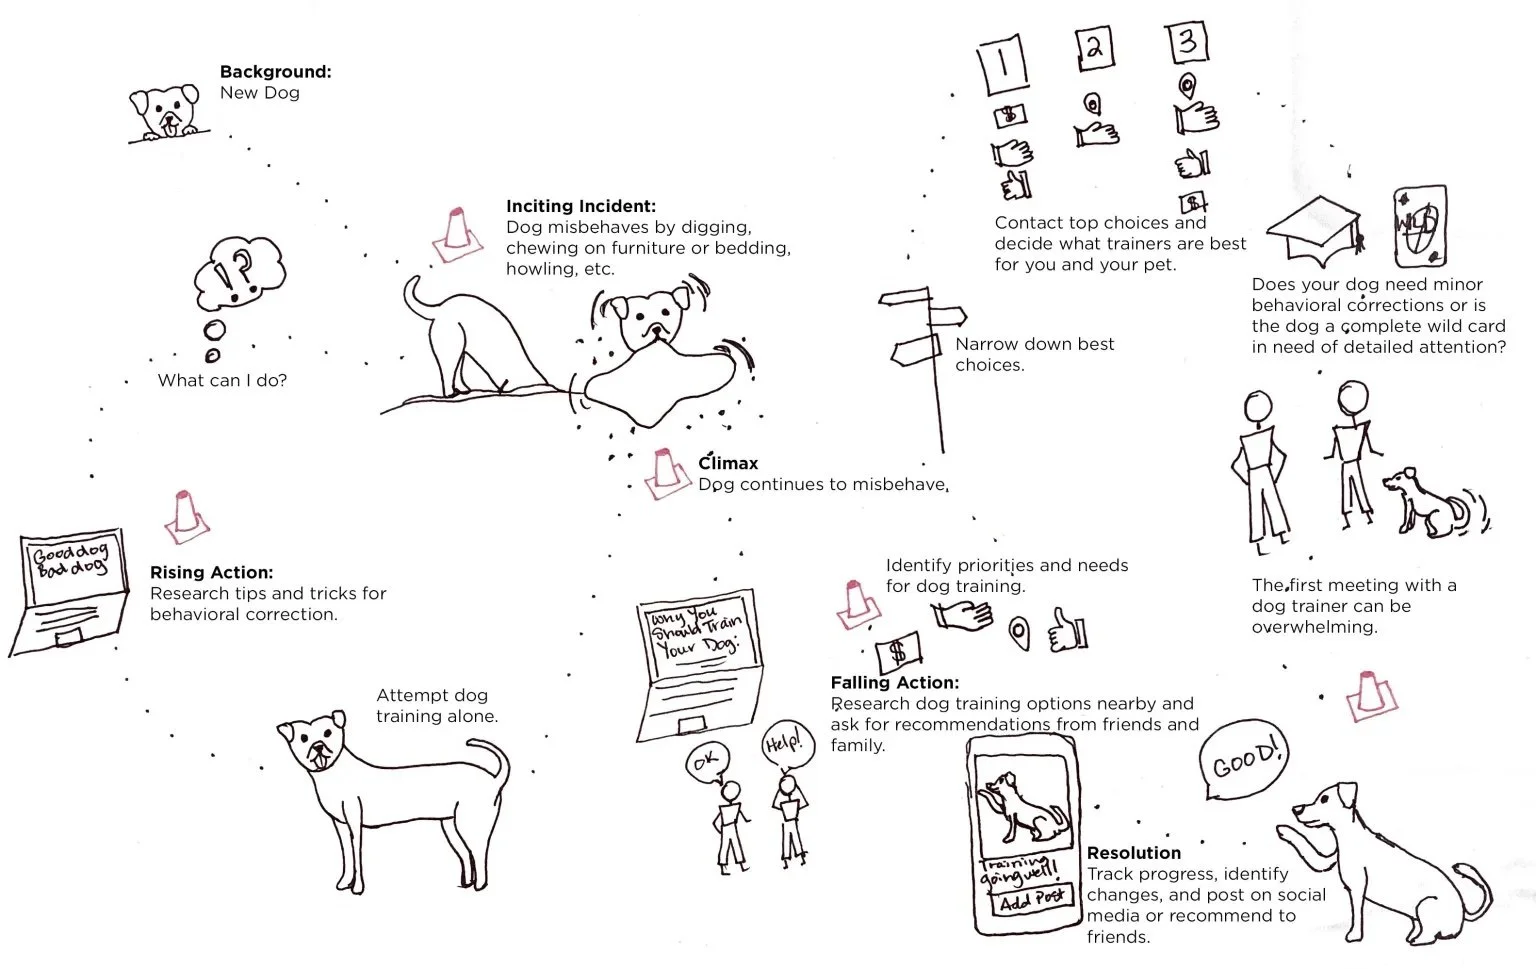 Background:
New Dog
Inciting Incident:
Dog misbehaves by digging,
chewing on furniture or bedding,
howling, etc.
!?
What can I do?
Good dog
Bad dog
Rising Action:
Research tips and tricks for
behavioral correction.
Attempt dog
training alone.
Climax
Dog continues to misbehave.
Why You
Should Train
Your Dog:
OK
Help!
Identify priorities and needs
for dog training.
$
Falling Action:
Research dog training options nearby and
ask for recommendations from friends and
family.
Narrow down best
choices.
1
2
3
$
$
Contact top choices and
decide what trainers are best
for you and your pet.
WILD
Does your dog need minor
behavioral corrections or is
the dog a complete wild card
in need of detailed attention?
The first meeting with a
dog trainer can be
overwhelming.
GOOD!
Training
going well!
Add Post
Resolution
Track progress, identify
changes, and post on social
media or recommend to
friends.